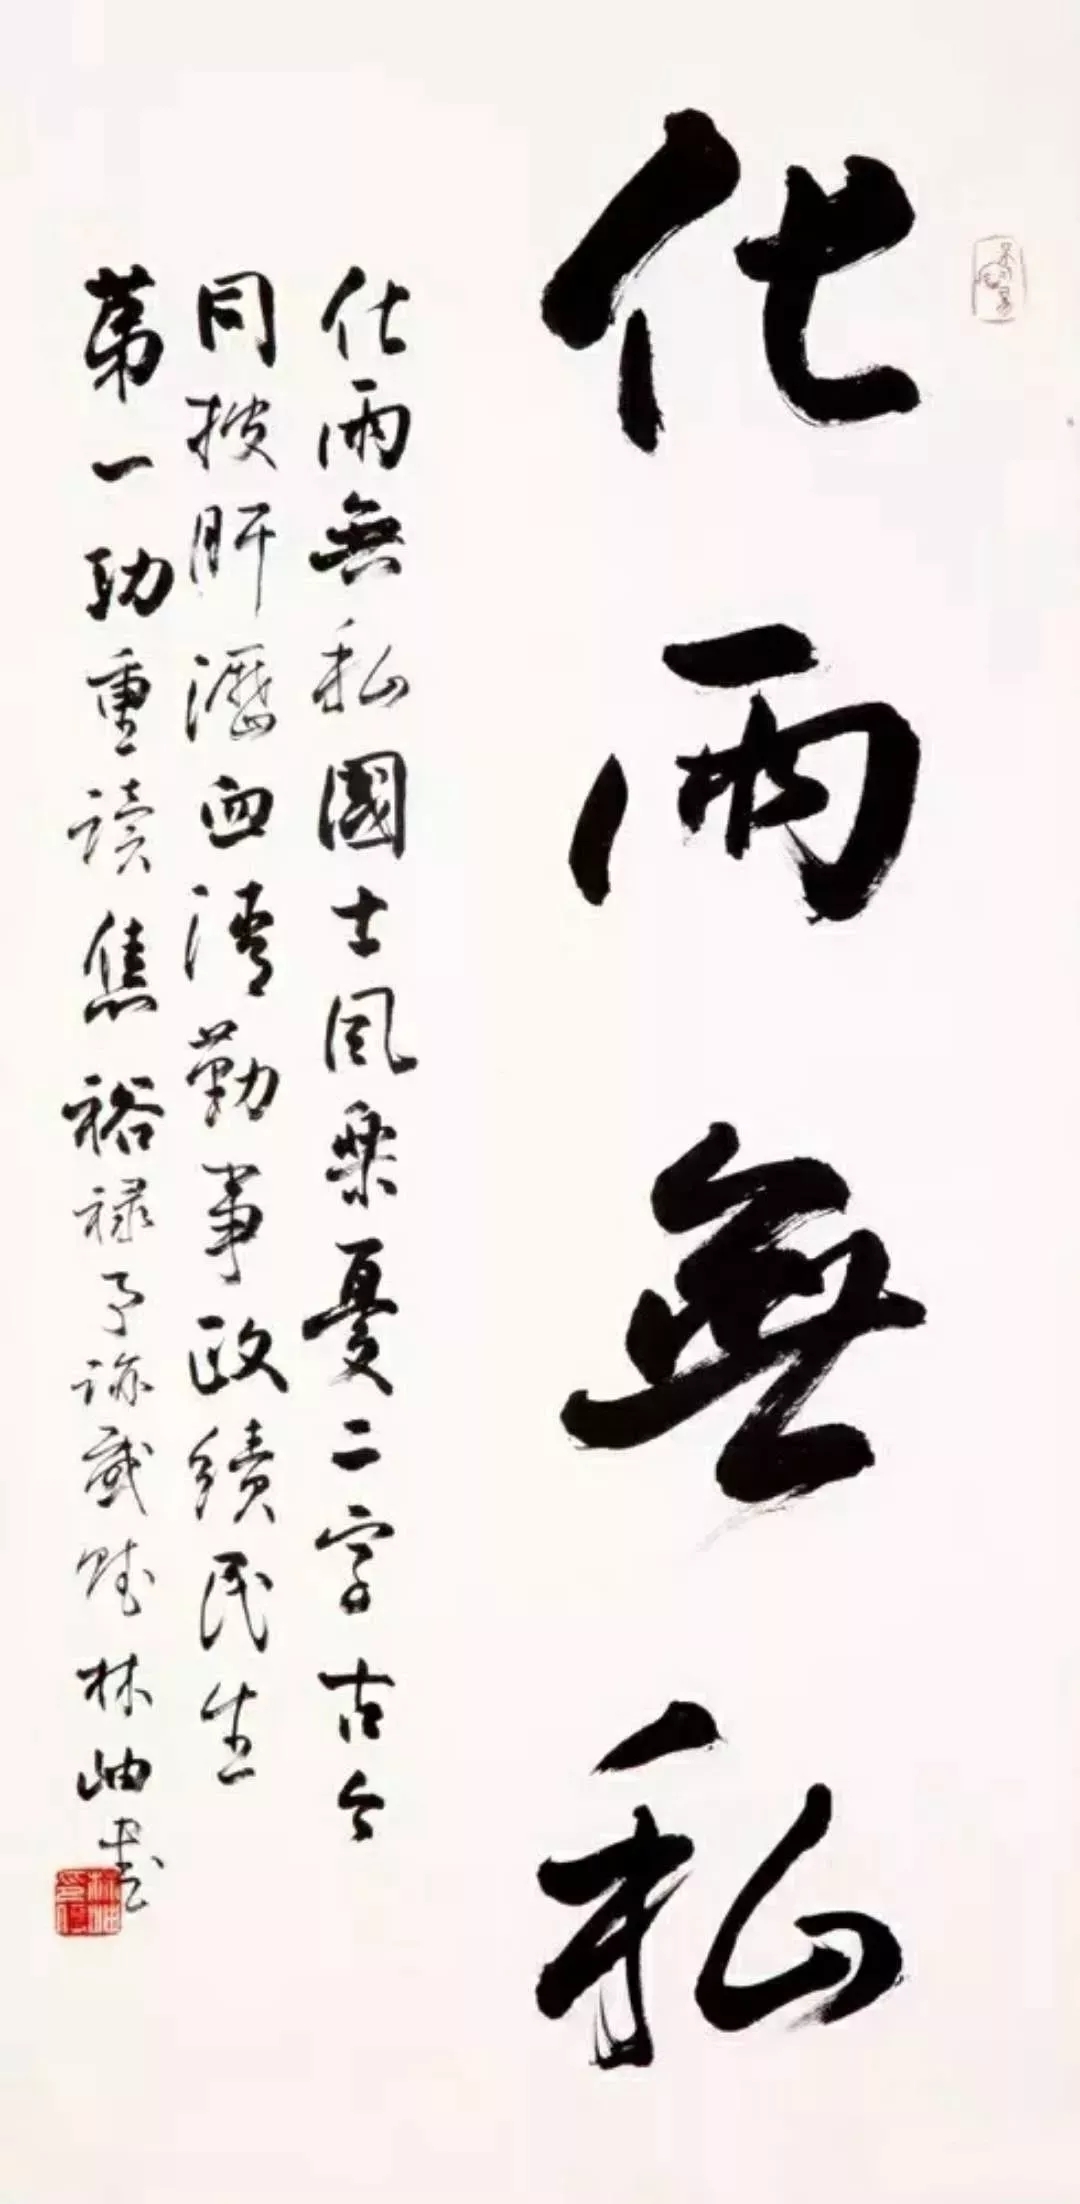 化雨無私
化雨無私國士風樂憂二字古今
同披肝瀝血清勤事政績民生
第一功重讀焦裕禄事跡感賦林岫書